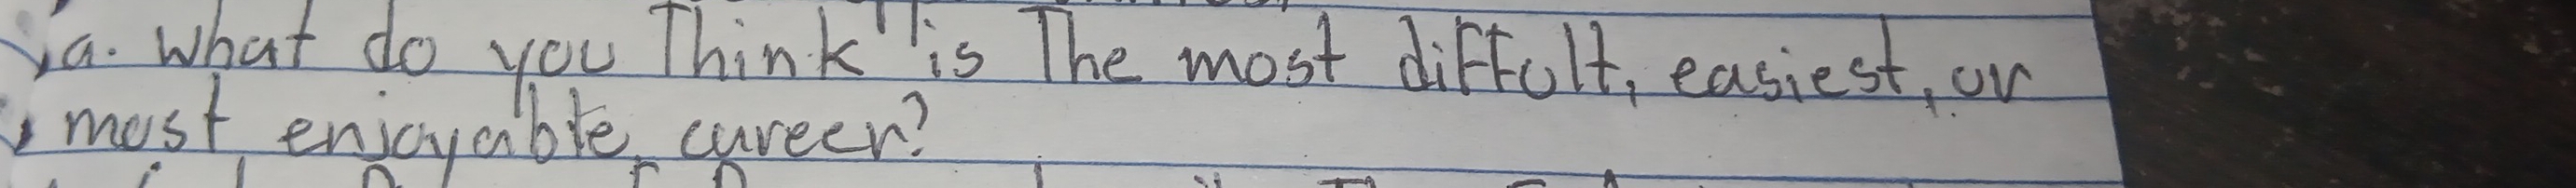 a. What do you Think is The most diffult, easiest, or
most enjoyable career?